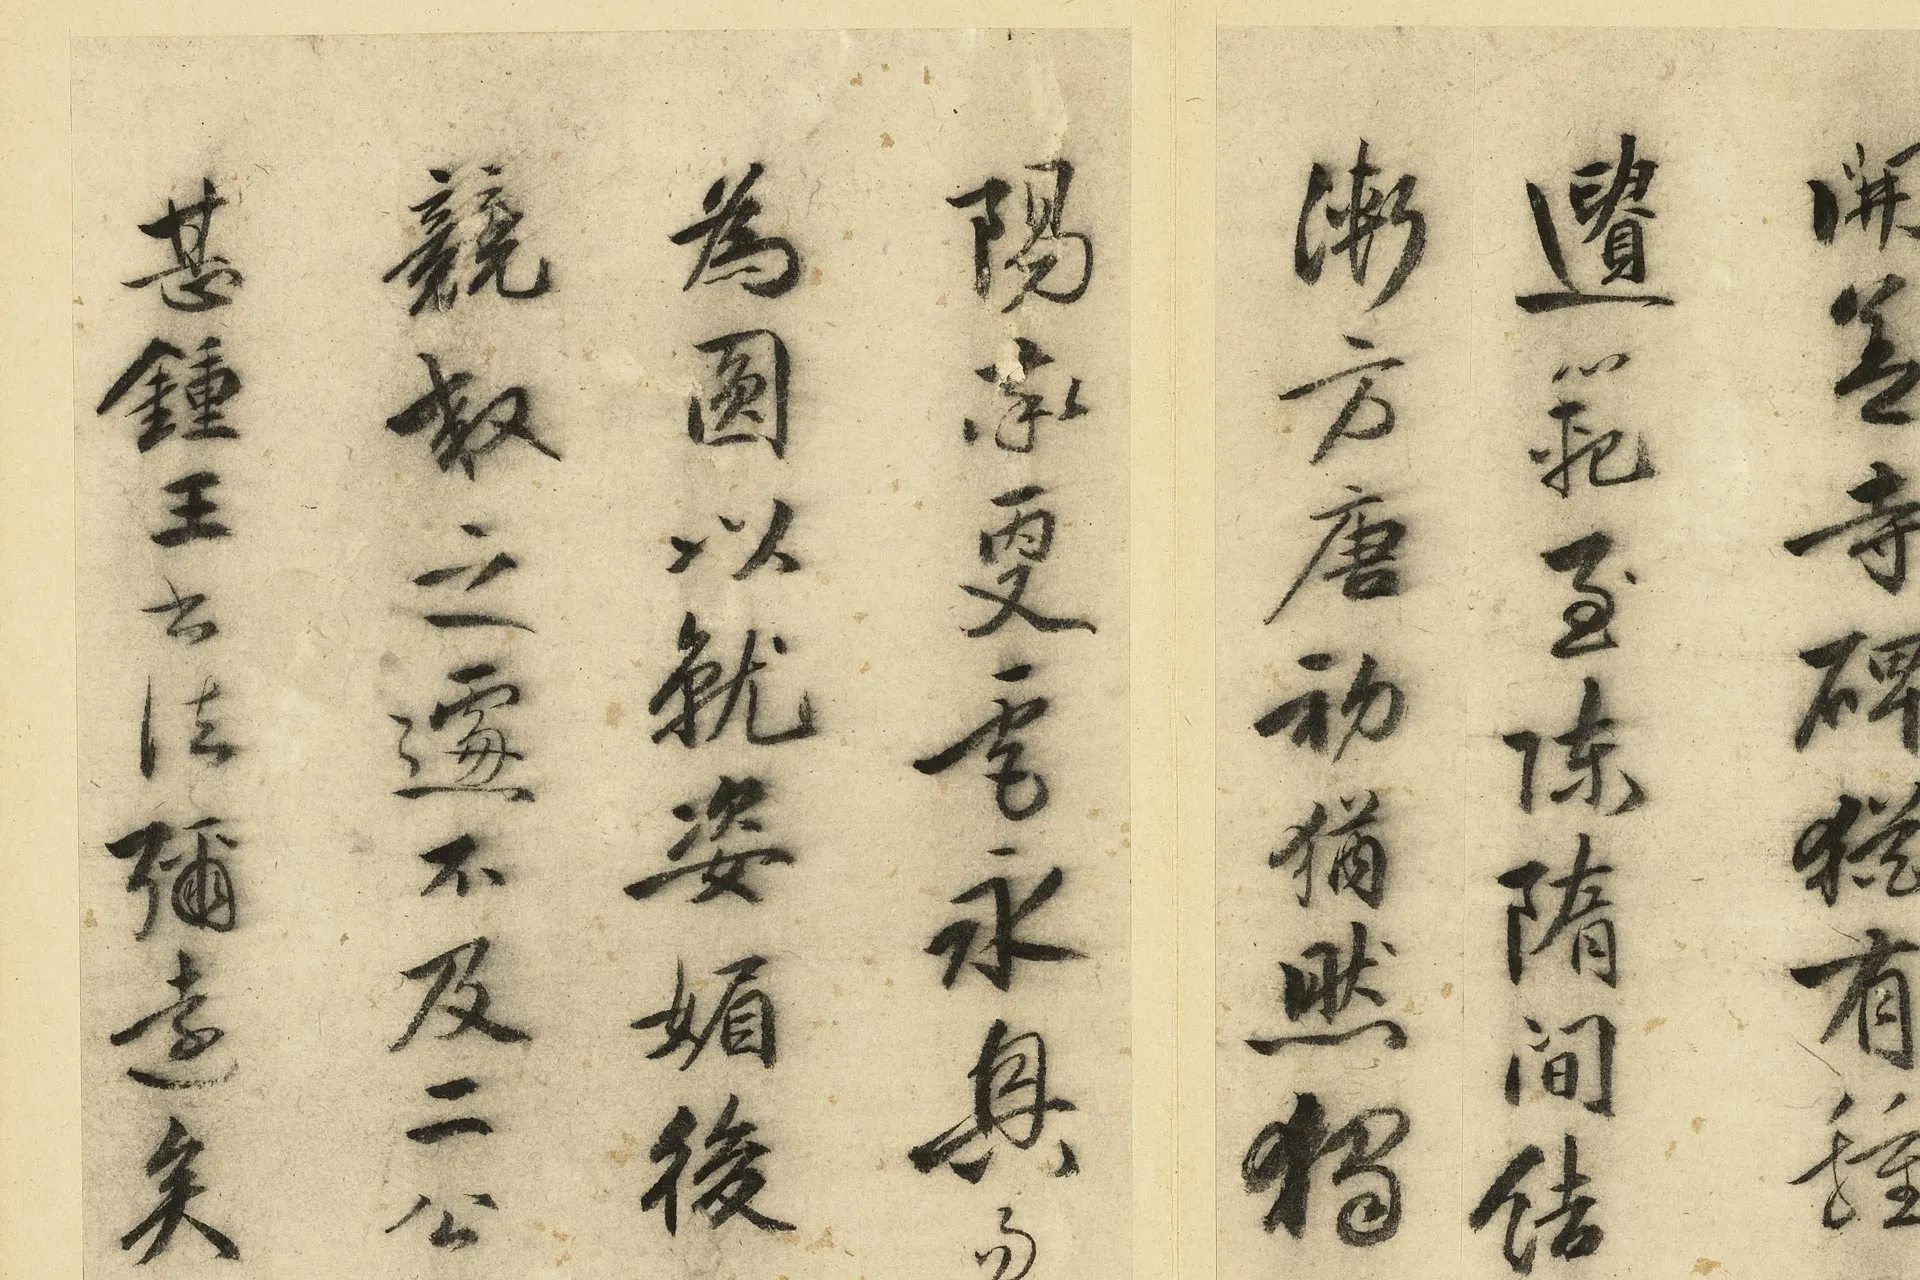 開善寺碑猶有鍾
遺範至陳隋間結
漸方唐初猶然獨
陽率更虞永興
為圓以就姿媚後
競效之遽不及二公
甚鍾王書法彌遠矣